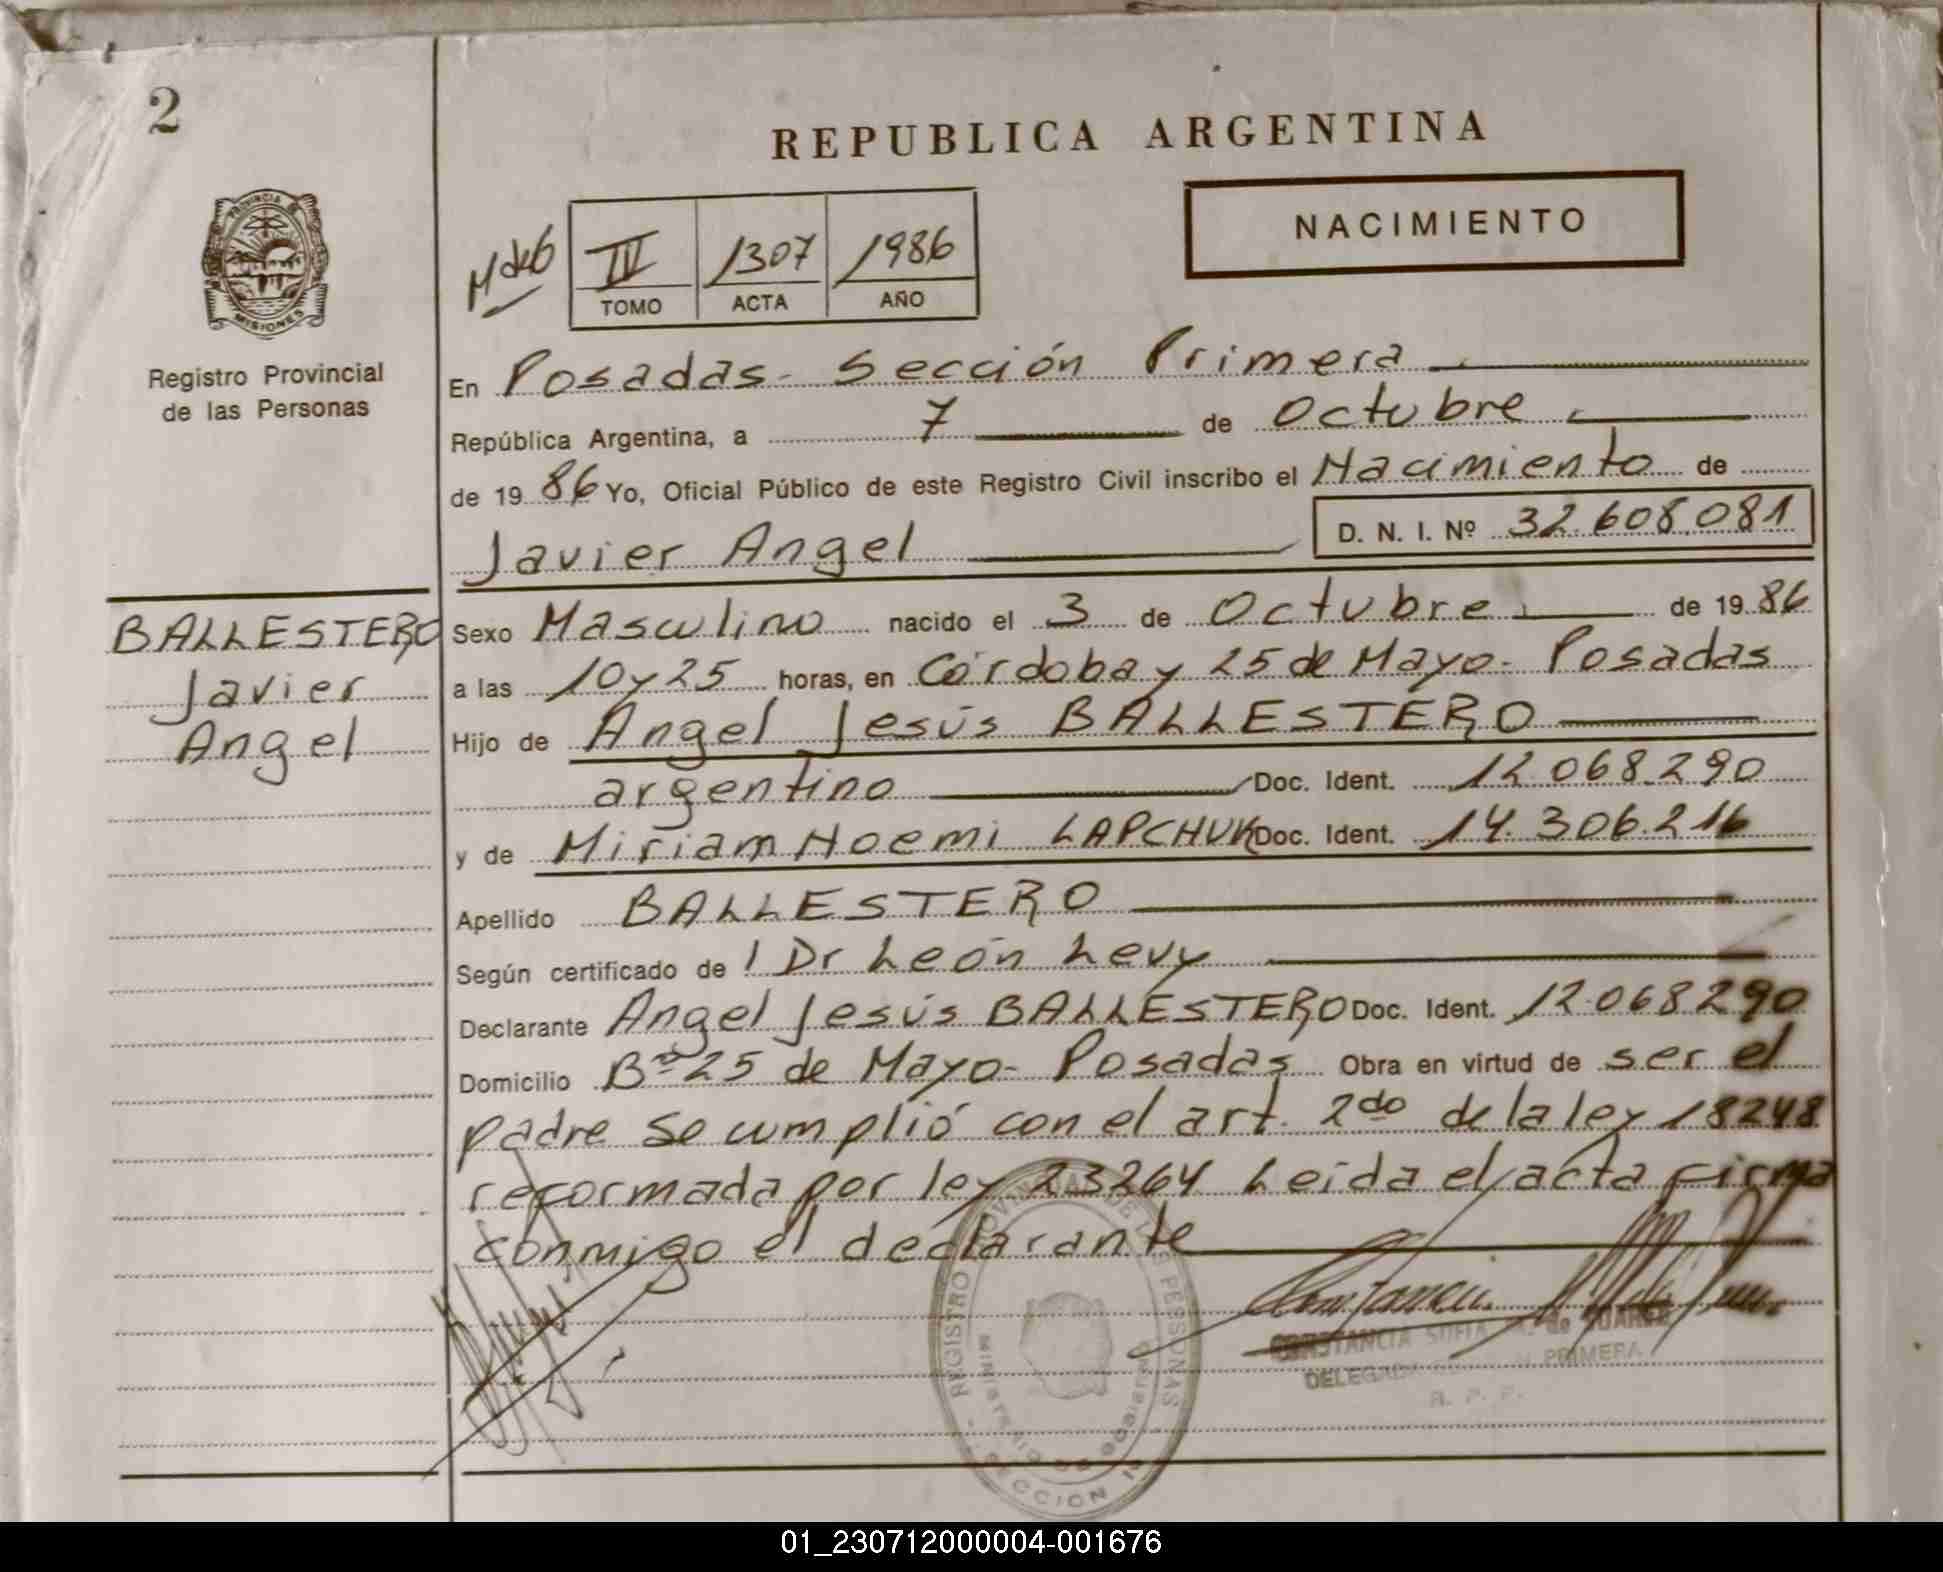 2
REPUBLICA ARGENTINA
NACIMIENTO
IV 1307 1986
TOMO ACTA AÑO
PROVINCIA DE
MISIONES
Registro Provincial
de las Personas
En Posadas - Sección Primera
República Argentina, a 7 de Octubre
de 1986 Yo, Oficial Público de este Registro Civil inscribo el Nacimiento de
Javier Angel D. N. I. Nº 32.608.081
BALLESTERO
Javier
Angel
Sexo Masculino nacido el 3 de Octubre de 1986
a las 10 y 25 horas, en Córdoba y 25 de Mayo - Posadas
Hijo de Angel Jesús BALLESTERO
argentino Doc. Ident. 12.068.290
y de Miriam Noemi LAPCHUK Doc. Ident. 14.306.216
Apellido BALLESTERO
Según certificado de 1 Dr León Levy
Declarante Angel Jesús BALLESTERO Doc. Ident. 12.068290
Domicilio Bº 25 de Mayo - Posadas Obra en virtud de ser el
padre se cumplió con el art. 2do de la ley 18248
reformada por ley 23264 Leida el acta firma
conmigo el declarante
REGISTRO PROVINCIAL DE LAS PERSONAS
MINISTERIO DE GOBIERNO
SECCION 1a
CONSTANCIA SOFIA de SUAREZ
DELEGADA SECCION PRIMERA
R. P. P.
01_230712000004-001676